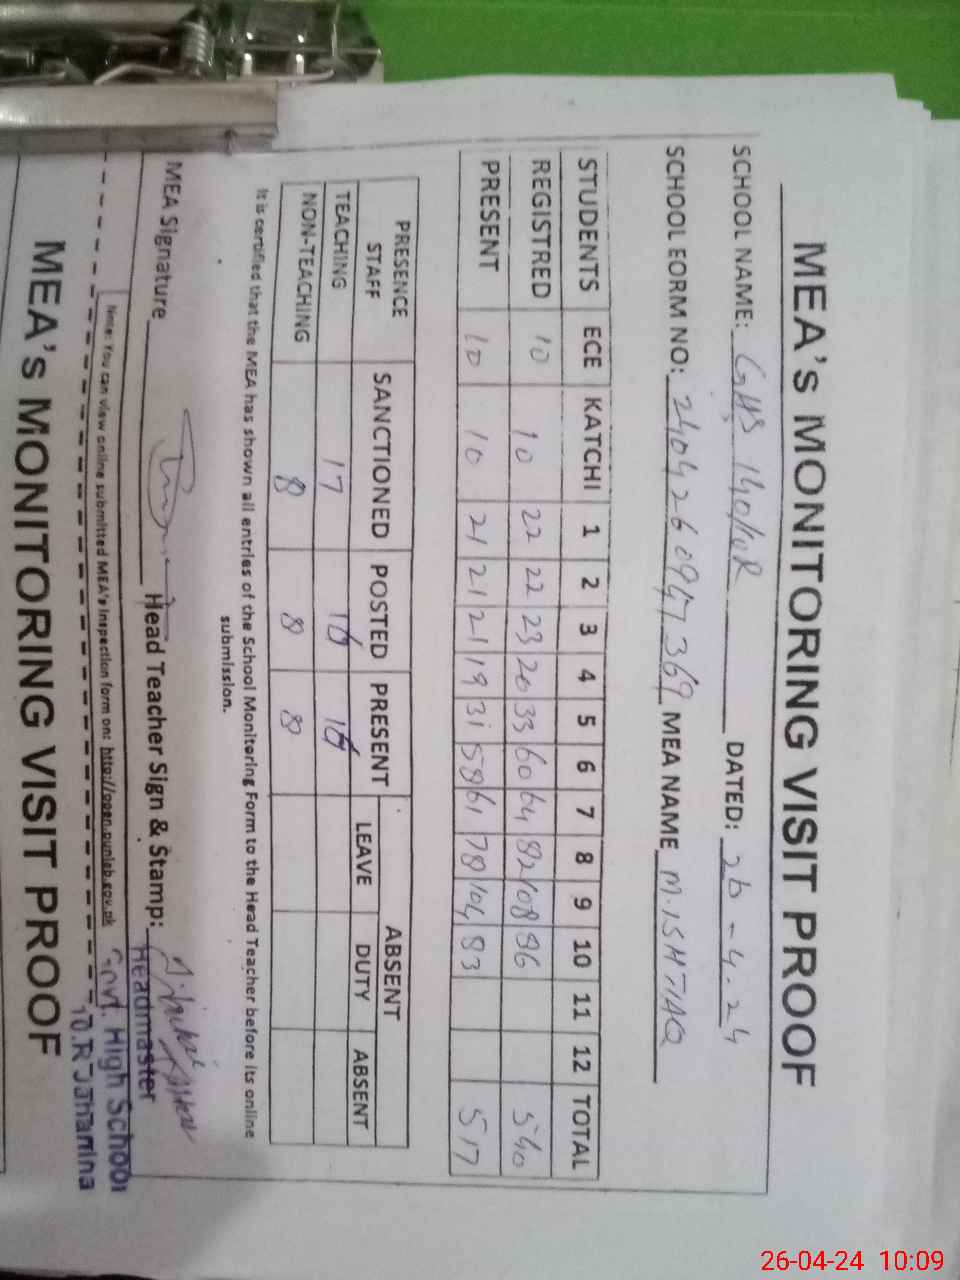 MEA's MONITORING VISIT PROOF
SCHOOL NAME: GHS 140/10R DATED: 26-4-24
SCHOOL EORM NO: 240426 0947369 MEA NAME M.ISHTIAQ
STUDENTS ECE KATCHI 1 2 3 4 5 6 7 8 9 10 11 12 TOTAL
REGISTRED 10 10 22 22 23 20 33 60 64 82 108 86 540
PRESENT 10 10 21 21 21 19 31 58 61 78 104 83 517
PRESENCE STAFF SANCTIONED POSTED PRESENT ABSENT
LEAVE DUTY ABSENT
TEACHING 17 16 16
NON-TEACHING 8 8 8
It is certified that the MEA has shown all entries of the School Monitoring Form to the Head Teacher before its online
submission.
MEA Signature Head Teacher Sign & Stamp:
Headmaster
Govt. High School
10.R Jahania
Note: You can view online submitted MEA's inspection form on: http://open.punjab.gov.pk
MEA's MONITORING VISIT PROOF
26-04-24 10:09